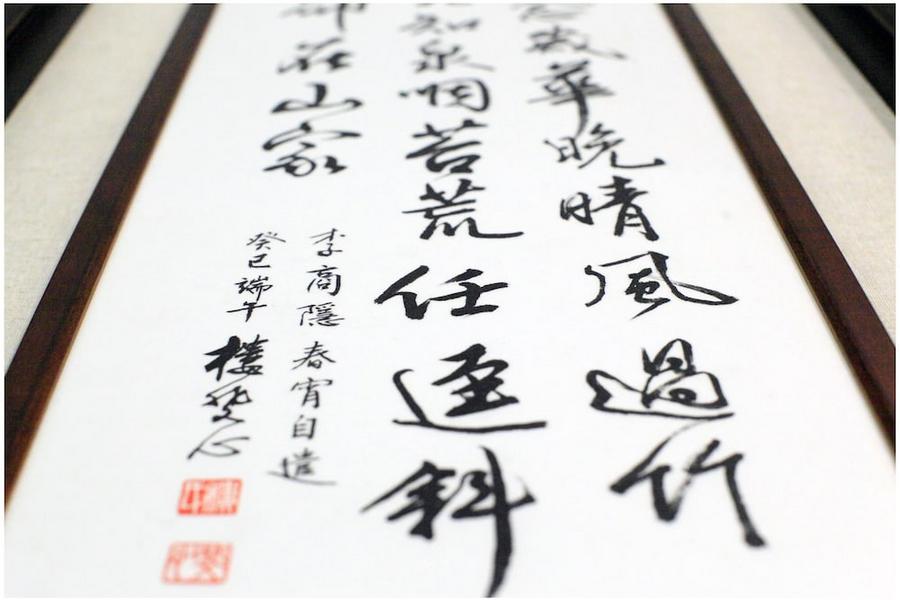 念歲華晚晴風過竹
知泉咽苔荒任逕斜
在山家
李商隱春宵自遣
癸巳端午樓心